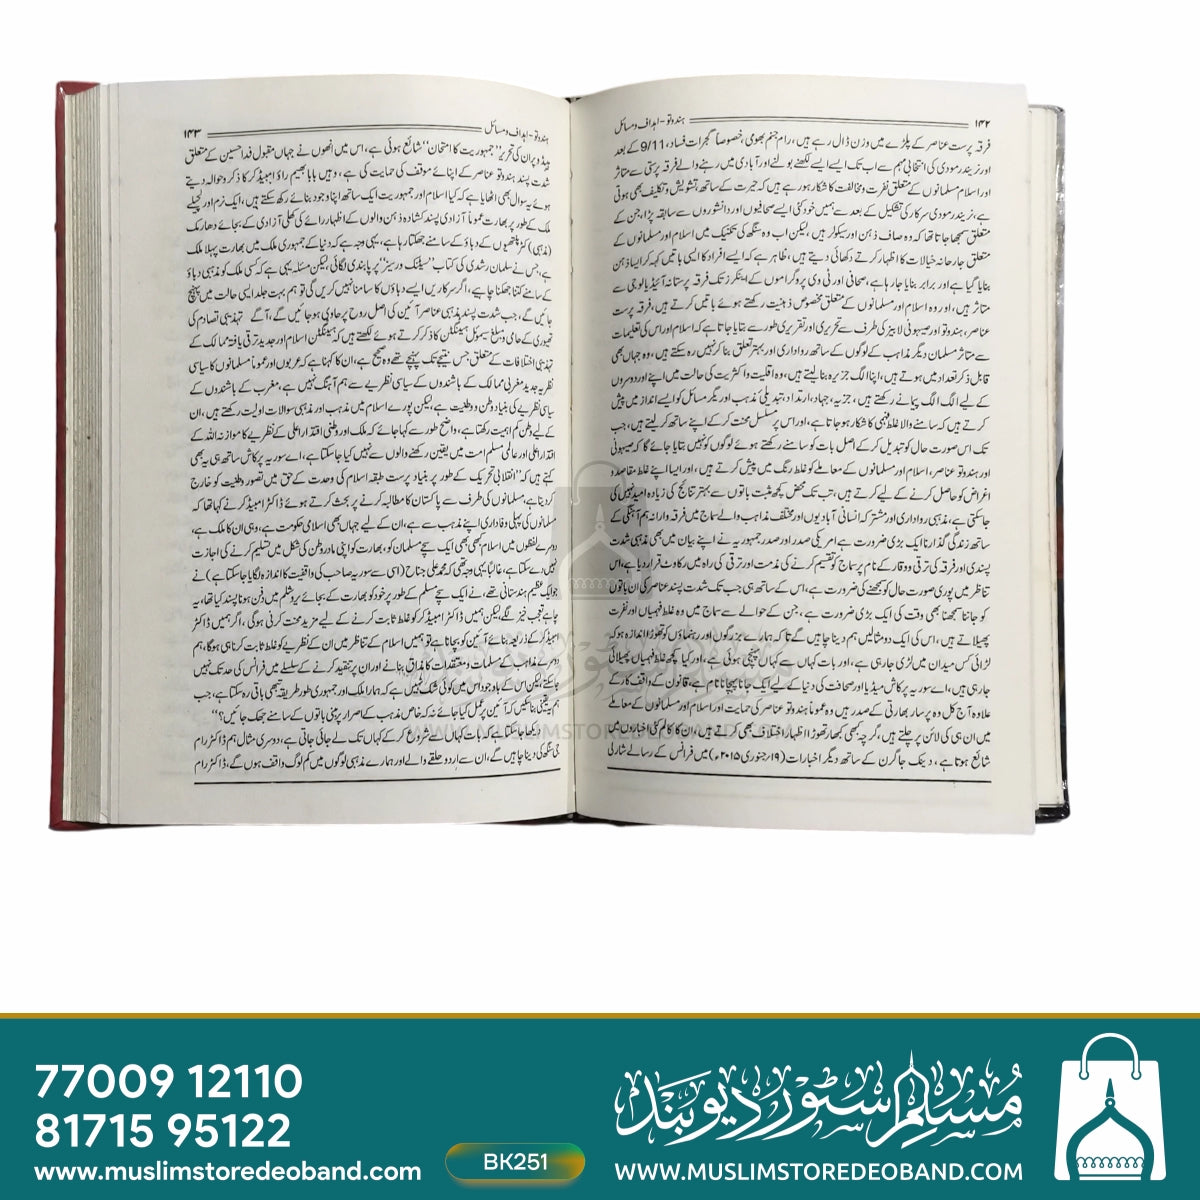 ۱۴۲ ہندوتو-اہداف ومسائل
فرقہ پرست عناصر کے پلڑے میں وزن ڈال رہے ہیں، رام جنم بھومی خصوصاً گجرات فساد، 9/11 کے بعد
اور نریندر مودی کی انتخابی مہم سے اب تک ایسے ایسے لکھنے بولنے اور آبادی میں رہنے والے فرقہ پرستی سے متاثر
اور اسلام مسلمانوں کے متعلق نفرت ومخالفت کا شکار ہورہے ہیں کہ حیرت کے ساتھ تشویش وتکلیف بھی ہوتی
ہے، نریندر مودی سرکار کی تشکیل کے بعد سے ہمیں خود کئی ایسے صحافیوں اور دانشوروں سے سابقہ پڑا، جن کے
متعلق سمجھا جاتا تھا کہ وہ صاف ذہن اور سیکولر ہیں، لیکن اب وہ سنگھ کی تکنیک میں اسلام اور مسلمانوں کے
متعلق جارحانہ خیالات کا اظہار کرتے دکھائی دیتے ہیں، ظاہر ہے کہ ایسے افراد کا ایسی باتیں کہہ کر ایسا ذہن
بنایا گیا ہے اور برابر بنایا جارہا ہے، صحافی اور ٹی وی پروگراموں کے اینکرز تک فرقہ پرستانہ آئیڈیالوجی سے
متاثر ہیں، اور وہ اسلام اور مسلمانوں کے متعلق مخصوص ذہنیت رکھتے ہوئے باتیں کرتے ہیں، فرقہ پرست
عناصر، ہندوتو اور صیہونی لابیز کی طرف سے تحریری اور تقریری طور سے بتایا جاتا ہے کہ اسلام اور اس کی تعلیمات
سے متاثر مسلمان دیگر مذاہب کے لوگوں کے ساتھ رواداری اور بہتر تعلق بنا کر نہیں رہ سکتے ہیں، وہ جہاں بھی
قابل ذکر تعداد میں ہوتے ہیں، اپنا الگ جزیرہ بنالیتے ہیں، وہ اقلیت واکثریت کی حالت میں اپنے اور دوسروں
کے لیے الگ الگ پیمانے رکھتے ہیں، جزیہ، جہاد، ارتداد، تبدیلیٔ مذہب اور دیگر مسائل کو ایسے انداز میں پیش
کرتے ہیں کہ سامنے والا غلط فہمی کا شکار ہوجاتا ہے، اور اس پر مسلسل محنت کرکے اپنے ساتھ کرلیتے ہیں، جب
تک اس صورت حال کو تبدیل کرکے اصل بات کو سامنے رکھتے ہوئے لوگوں کو نہیں بتایا جائے گا کہ صیہونی
اور ہندوتو عناصر، اسلام اور مسلمانوں کے معاملے کو غلط رنگ میں پیش کرتے ہیں، اور ایسا اپنے غلط مقاصد و
اغراض کو حاصل کرنے کے لیے کرتے ہیں، تب تک محض کچھ مثبت باتوں سے بہتر نتائج کی زیادہ امید نہیں کی
جاسکتی ہے، مذہبی رواداری اور مشترکہ انسانی آبادیوں اور مختلف مذاہب والے سماج میں فرقہ وارانہ ہم آہنگی کے
ساتھ زندگی گذارنا ایک بڑی ضرورت ہے امریکی صدر اور صدر جمہوریہ نے اپنے بیان میں بھی مذہبی شدت
پسندی اور فرقہ کی ترقی ووقار کے نام پر سماج کو تقسیم کرنے کی مذمت اور ترقی کی راہ میں رکاوٹ قرار دیا ہے، اس
تناظر میں پوری صورت حال کو سمجھنے کی ضرورت ہے، اس کے ساتھ ہی جب تک شدت پسند عناصر کی ان باتوں
کو جاننا سمجھنا بھی وقت کی ایک بڑی ضرورت ہے، جن کے حوالے سے سماج میں وہ غلط فہمیاں اور نفرت
پھیلاتے ہیں، اس کی ایک دو مثالیں ہم دینا چاہیں گے تاکہ ہمارے بزرگوں اور رہنماؤں کو تھوڑا اندازہ ہو کہ
لڑائی کس میدان میں لڑی جارہی ہے، اور بات کہاں سے کہاں پہنچی ہوئی ہے، اور کیا کچھ غلط فہمیاں پھیلائی
جارہی ہیں، اے سوریہ پرکاش میڈیا اور صحافت کی دنیا کے لیے ایک جانا پہچانا نام ہے، قانون کے واقف کار کے
علاوہ آج کل وہ پرسار بھارتی کے صدر ہیں وہ عموماً ہندوتو عناصر کی حمایت اور اسلام اور مسلمانوں کے معاملے
میں ان ہی کی لائن پر چلتے ہیں، گرچہ بھی کبھار تھوڑا اظہار اختلاف بھی کرتے ہیں، ان کا کالم کئی اخبارات میں
شائع ہوتا ہے، دینک جاگرن کے ساتھ دیگر اخبارات (۱۹/جنوری ۲۰۱۵ء) میں فرانس کے رسالے شارلی
ہندوتو-اہداف ومسائل ۱۴۳
ہیڈو پر ان کی تحریر ”جمہوریت کا امتحان“ شائع ہوئی ہے، اس میں انھوں نے جہاں مقبول فدا حسین کے متعلق
شدت پسند ہندوتو عناصر کے اپنائے موقف کی حمایت کی ہے، وہیں بابا بھیم راؤ امبیڈکر کا ذکر وحوالہ دیتے
ہوئے یہ سوال بھی اٹھایا ہے کہ کیا اسلام اور جمہوریت ایک ساتھ اپنا وجود بنائے رکھ سکتے ہیں، ایک نرم اور لچیلے
ملک کے طور پر بھارت عموماً آزادی پسند کشادہ ذہن والوں کے اظہار رائے کی کھلی آزادی کے بجائے دھارمک
(مذہبی) کٹر پنتھیوں کے دباؤ کے سامنے جھکتا رہا ہے، یہی وجہ ہے کہ دنیا کے جمہوری ملک میں بھارت پہلا ملک
ہے، جس نے سلمان رشدی کی کتاب ”سیٹنک ورسیز“ پر پابندی لگائی، لیکن مسئلہ یہی ہے کہ کسی ملک کو مذہبی دباؤ
کے سامنے کتنا جھکنا چاہیے، اگر سرکاریں ایسے دباؤں کا سامنا نہیں کریں گی تو ہم بہت جلد ایسی حالت میں پہنچ
جائیں گے، جب شدت پسند مذہبی عناصر آئین کی اصل روح پر حاوی ہوجائیں گے، آگے تہذیبی تصادم کی
تھیوری کے حامی ومبلغ سیموئل ہینٹنگٹن کا ذکر کرتے ہوئے لکھتے ہیں کہ ہینٹنگٹن اسلام اور جدید ترقی یافتہ ممالک کے
تہذیبی اختلافات کے متعلق جس نتیجے تک پہنچے تھے وہ صحیح ہے، ان کا کہنا ہے کہ عربوں اور عموماً مسلمانوں کا سیاسی
نظریہ جدید مغربی ممالک کے باشندوں کے سیاسی نظریے سے ہم آہنگ نہیں ہے، مغرب کے باشندوں کے
سیاسی نظریے کی بنیاد وطن ووطنیت ہے، لیکن پورے اسلام میں مذہب اور مذہبی سوالات اولیت رکھتے ہیں، ان
کے لیے وطن کم اہمیت رکھتا ہے، واضح طور سے کہا جائے کہ ملک اور وطنی اقتدار اعلیٰ کے نظریے کا موازنہ اللہ کے
اقتدار اعلیٰ اور عالمی مسلم امت میں یقین رکھنے والوں سے نہیں کیا جاسکتا ہے، اے سوریہ پرکاش ساتھ ہی یہ بھی
کہتے ہیں کہ ”انقلابی تحریک کے طور پر بنیاد پرست طبقہ اسلامی کی وحدت کے حق میں تصور وطنیت کو خارج
کردیتا ہے، مسلمانوں کی طرف سے پاکستان کا مطالبہ کرنے پر بحث کرتے ہوئے ڈاکٹر امبیڈکر نے کہا تھا کہ
مسلمانوں کی پہلی وفاداری اپنے مذہب سے ہے، ان کے لیے جہاں بھی اسلامی حکومت ہے، وہی ان کا ملک ہے،
دوسرے لفظوں میں اسلام کبھی بھی ایک سچے مسلمان کو، بھارت کو اپنی مادر وطن کی شکل میں تسلیم کرنے کی اجازت
نہیں دے سکتا ہے، غالباً یہی وجہ تھی کہ محمد علی جناح (اسی سے سوریہ صاحب کی واقفیت کا اندازہ لگایا جاسکتا ہے) نے
جو ایک عظیم ہندستانی تھے، نے ایک سچے مسلم کے طور پر خود کو بھارت کے بجائے یروشلم میں دفن ہونا پسند کیا تھا، یہ
چاہے تعجب خیز لگے، لیکن ہمیں ڈاکٹر امبیڈکر کو غلط ثابت کرنے کے لیے مزید محنت کرنی ہوگی، اگر ہمیں ڈاکٹر
امبیڈکر کے ذریعہ بنائے آئین کو بچانا ہے تو ہمیں اسلام کے تناظر میں ان کے نظریے کو غلط ثابت کرنا ہی ہوگا، ہم
دوسرے مذاہب کے مسلمات ومعتقدات کا مذاق بنانے اور ان پر تنقید کرنے کے سلسلے میں فرانس کی حد تک نہیں
جاسکتے، لیکن اس کے باوجود اس میں کوئی شک نہیں ہے کہ ہمارا ملک اور جمہوری طور طریقہ تبھی باقی رہ سکتا ہے، جب
ہم یہ یقینی بنا سکیں کہ آئین پر عمل کیا جائے نہ کہ خاص مذہب کے اصرار پر مبنی باتوں کے سامنے جھک جائیں؟“
دیکھا جاسکتا ہے کہ بات کہاں سے شروع کرکے کہاں تک لے جائی جاتی ہے، دوسری مثال ہم ڈاکٹر رام
جی سنگھ کی دینا چاہیں گے، ان سے اردو حلقے والے اور ہمارے مذہبی لوگوں میں کم لوگ واقف ہوں گے، ڈاکٹر رام
WWW.MUSLIMSTOREDEOBAND.COM
77009 12110
81715 95122
www.muslimstoredeoband.com
BK251
مسلم سٹور دیوبند
WWW.MUSLIMSTOREDEOBAND.COM